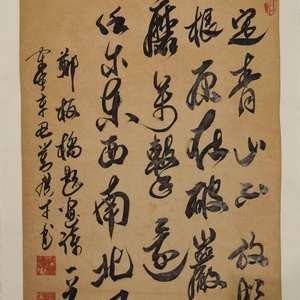 定青山不放鬆
根原在破巖
磨萬擊還
任尔東西南北
鄭板橋題畫詩一
辛丑